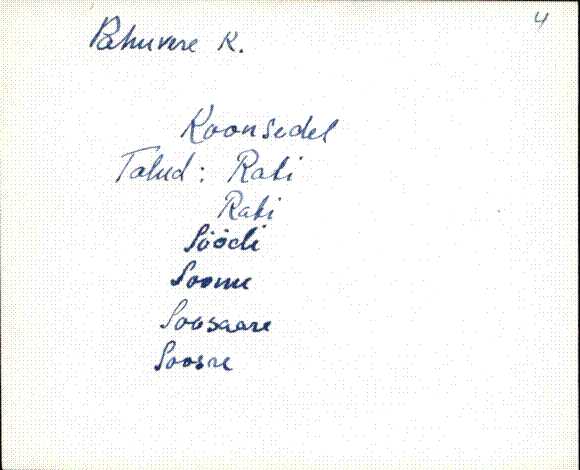 4
Pahuvere K.
Koonsedel
Talud: Rabi
Rabi
Söödi
Soome
Soosaare
Soosre